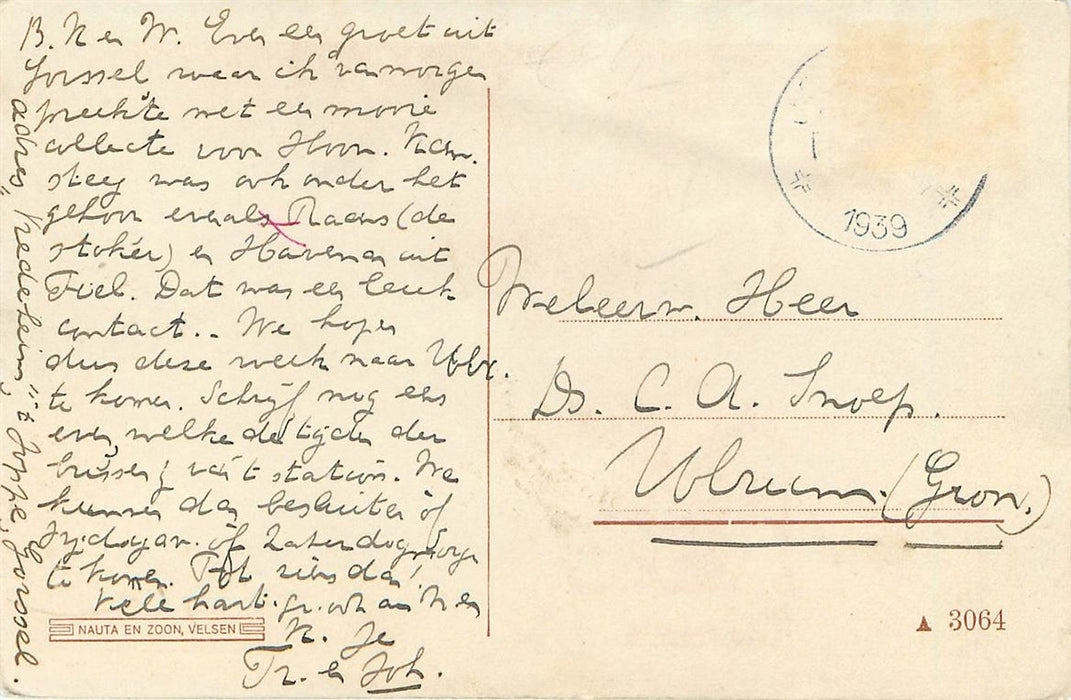 B. K en W. Even een groet uit
Gorssel waar ik vanmorgen
preekte met een mooie
collecte voor Hoorn. Kam.
steeg was ook onder het
gehoor evenals Raans (de
stoker) en Haveman uit
Tiel. Dat was een leuk
contact.. We hopen
dus deze week naar Ulr.
te komen. Schrijf nog eens
even, welke de tijden der
bussen zijn v't station. We
kunnen dan besluiten óf
Vrijdagav. óf Zaterdagmorgen
te komen. Tot ziens dan!
Vele hart. gr. ook aan K en
K. Je
Tr. en Joh.
adres "Vredeheim" te Joppe, Gorssel.
NAUTA EN ZOON, VELSEN
1939
Weleerw. Heer
Ds. C. A. Snoep.
Ulrum. (Gron.)
▲ 3064